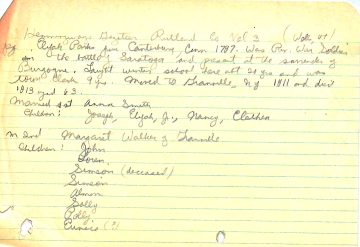 Hemenway Gazetteer Rutland Co Vol 3 (Wells Vt)
Pg. Elijah Parks from Canterbury, Conn 1787. Was Rev. War Soldier
in the battle Saratoga and present at the surrender of
Burgoyne. Taught winter school here abt 20 yrs and was
town clerk 9 yrs. Moved to Granville, N.Y. 1811 and died
1813 aged 63.
Married 1st Anna Smith
Children: Joseph, Elijah, Jr., Nancy, Clarinda
m 2nd Margaret Walker of Granville
Children: John
Loren,
Simson (deceased)
Simson
Almon
Sally
Polly
Eunice (?)